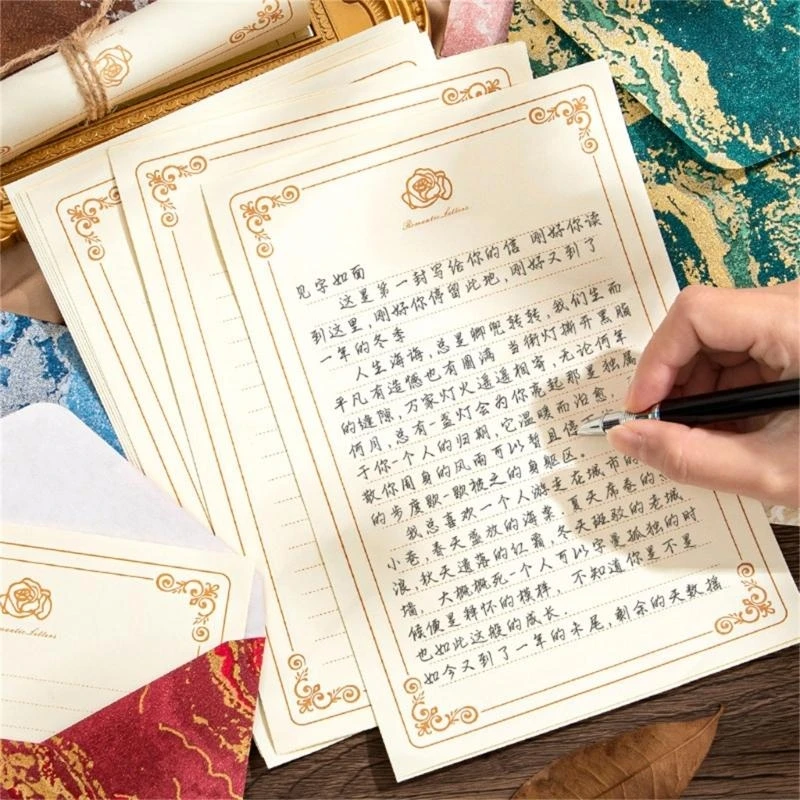 Romantic Letters
见字如面
这是第一封写给你的信 刚好你读
到这里,刚好你停留此地,刚好又到了
一年的冬季
人生海海,总是兜兜转转,我们生而
平凡有遗憾也有圆满 当街灯撕开黑脂
的缝隙,万家灯火遥遥相寄,无论何年
何月,总有一盏灯会为你亮起那是独属
于你一个人的归期,它温暖而治愈,
散你周身的风雨可以暂且停
的步履歇一歇疲乏的身躯区。
我总喜欢一个人游走在城市的
小巷,春天盛放的海棠,夏天席卷的
浪,秋天遗落的红霜,冬天斑驳的老城
墙,大概概死一个人可以学量孤独的时
候便是释怀的模样,不知道你是不是
也如此这般的成长.
如今又到了一年的末尾,剩余的天数摇
Romantic Letters